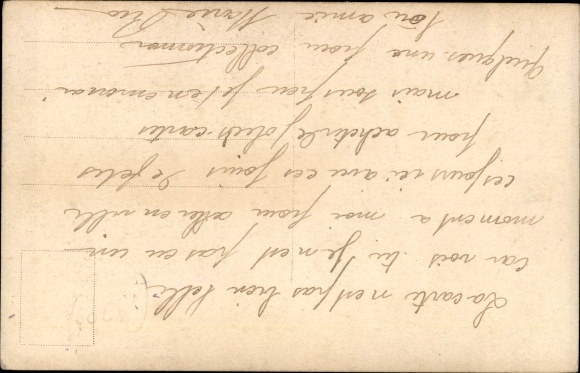 La carte n'est pas bien belle
car vois tu je n'est pas eu un
moment a moi pour aller en ville
ces jours ici avec ces jours de fêtes
pour acheter des cartes
mais sous peu je t'en enverrai
quelques une pour collectionner
Ton amie Marie